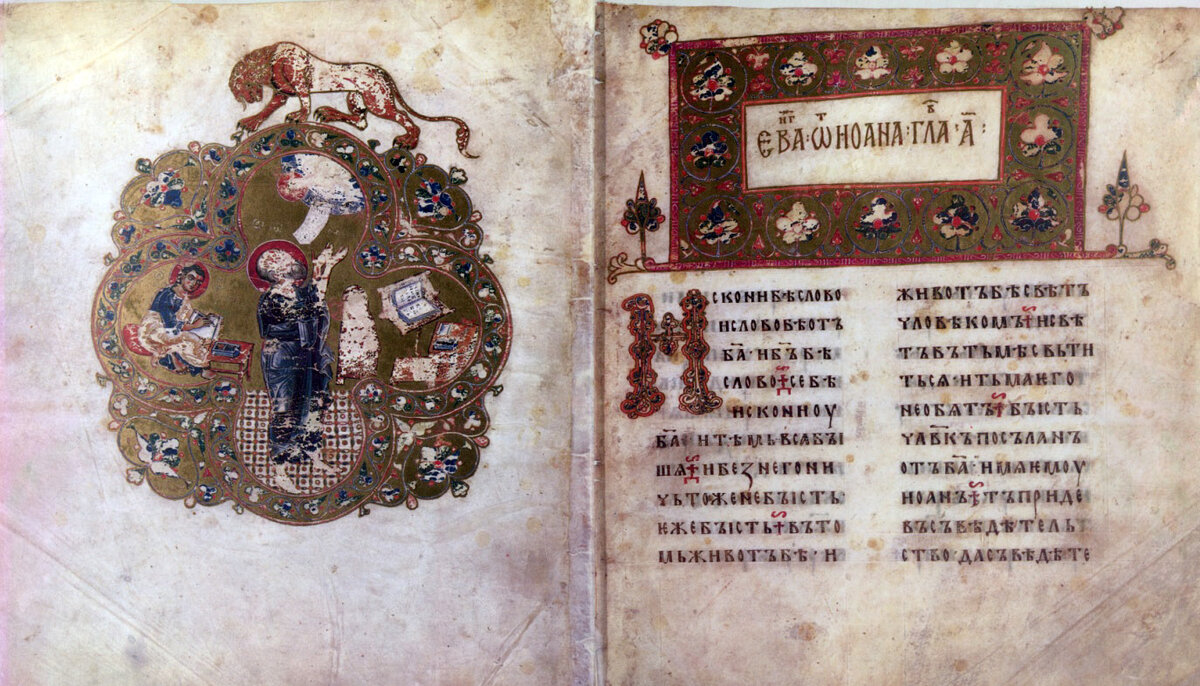 ЕВАⷩ҇Гⷧ҇·Ѿ ИОАНА·ГЛАⷡ҇·А҃:
ИСКОНИБѢСЛОВО
ИСЛОВОБѢОТЪ
Б҃А·ИБ҃ЪБѢ
СЛОВО·СЕБѢ
ИСКОНИОУ
Б҃А·ИТѢМЬВСАБЫ
ШѦ·ИБЕЗНЕГОНИ
ЧЬТОЖЕНЕБЫСТЬ
ЕЖЕБЫСТЬ·ВЪТО
МЬЖИВОТЪБѢ·И
ЖИВОТЪБѢСВѢТЪ
ЧЛОВѢКОМЪ·ИСВѢ
ТЪВЪТЬМѢСВЬТИ
ТЬСѦ·ИТЬМАѤГО
НЕОБѦТЪ·БЫСТЬ
ЧЛ҃ВКЪПОСЪЛАНЪ
ОТЪБ҃А·ИМѦѤМОУ
ИОАНЪ·ТЪПРИДЕ
ВЪСЪВѢДѢТЕЛЬ
СТВО·ДАСЪВѢДѢТЕ